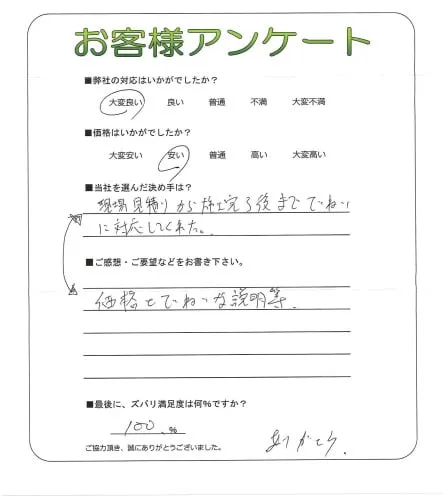 お客様アンケート
■弊社の対応はいかがでしたか?
大変良い 良い 普通 不満 大変不満
■価格はいかがでしたか?
大変安い 安い 普通 高い 大変高い
■当社を選んだ決め手は?
現場見積りから施工完了後までていねい
に対応してくれた。
■ご感想・ご要望などをお書き下さい。
価格とていねいな説明等.
■最後に、ズバリ満足度は何%ですか?
100.%
ご協力頂き、誠にありがとうございました。
ありがとう.